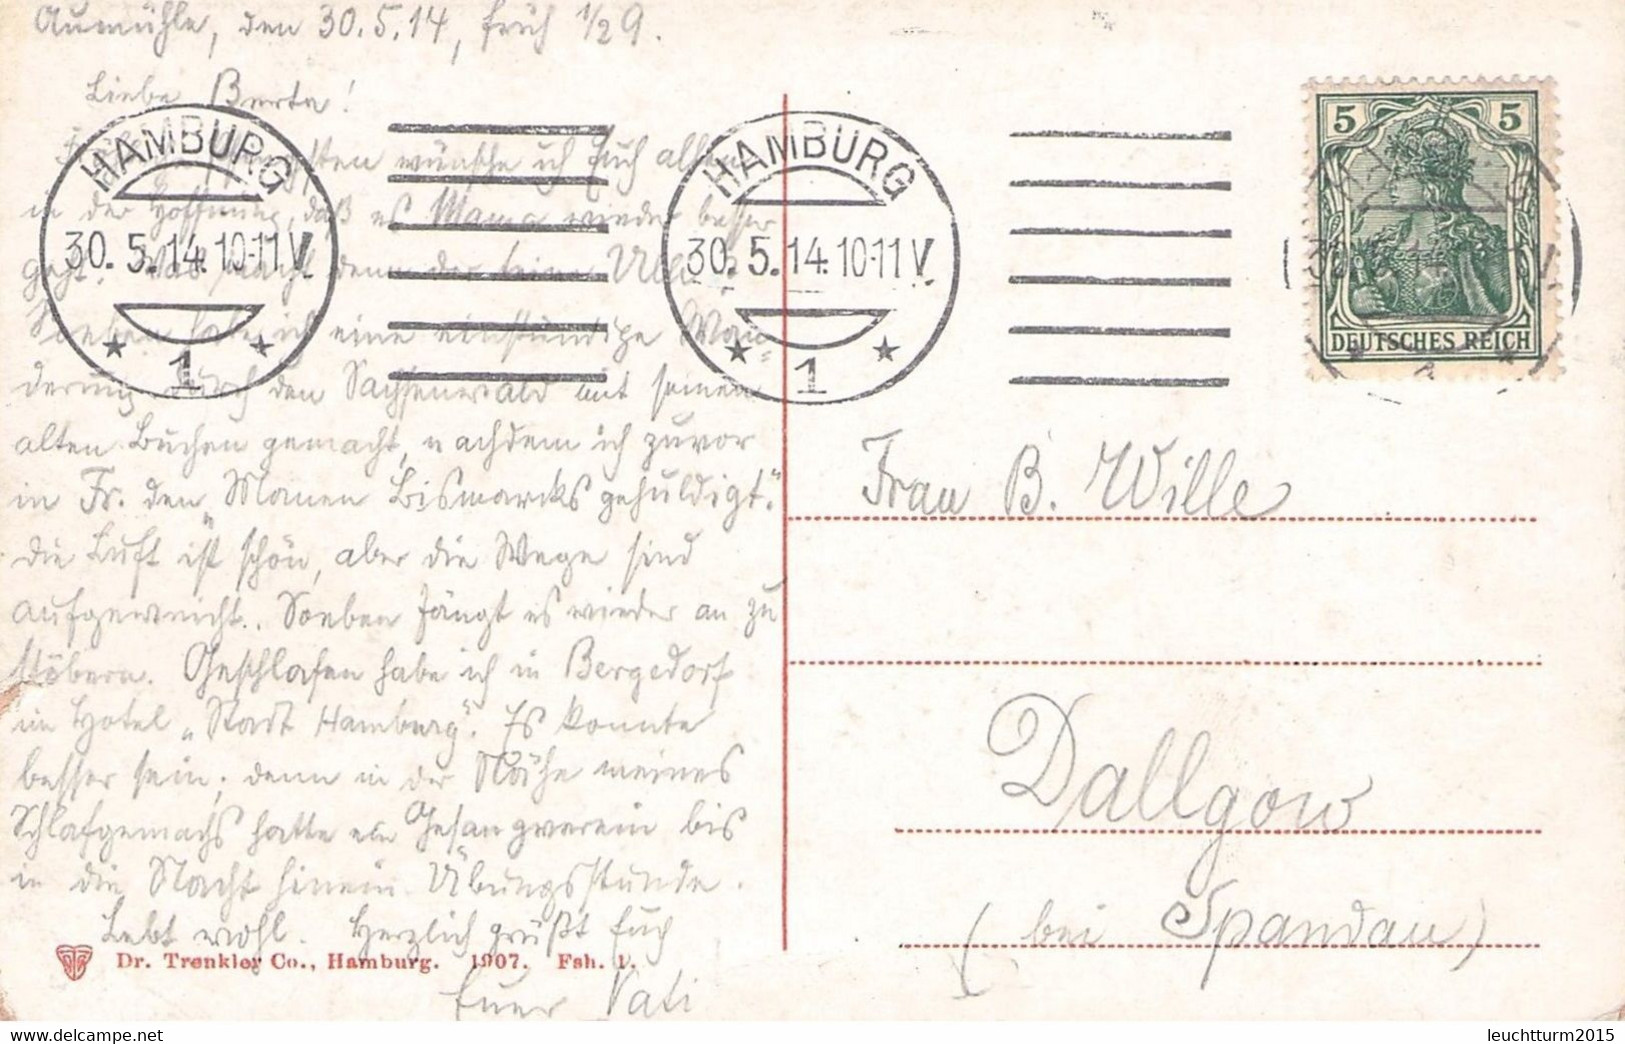 Aumühle, den 30.5.14, früh 1/2 9.
Liebe Berta!
wünsche ich Euch allen
in der Hoffnung, daß es Mama wieder besser
geht. Was macht denn der kleine Ulli?
Soeben habe ich eine einstündige Wan-
derung durch den Sachsenwald mit seinen
alten Buchen gemacht, nachdem ich zuvor
in Fr. den „Manen Bismarcks gehuldigt."
Die Luft ist schön, aber die Wege sind
aufgeweicht. Soeben fängt es wieder an zu
stöbern. Geschlafen habe ich in Bergedorf
im Hotel „Stadt Hamburg". Es konnte
besser sein; denn in der Nähe meines
Schlafgemachs hatte ein Gesangverein bis
in die Nacht hinein Übungsstunde.
Lebt wohl. Herzlich grüßt Euch
Euer Vati
HAMBURG
30.5.14.10-11V.
* 1 *
HAMBURG
30.5.14.10-11V.
* 1 *
5 5
DEUTSCHES REICH
Frau B. Wille
Dallgow
(bei Spandau)
Dr. Trenkler Co., Hamburg. 1907. Fsh. 1.
leuchtturm2015